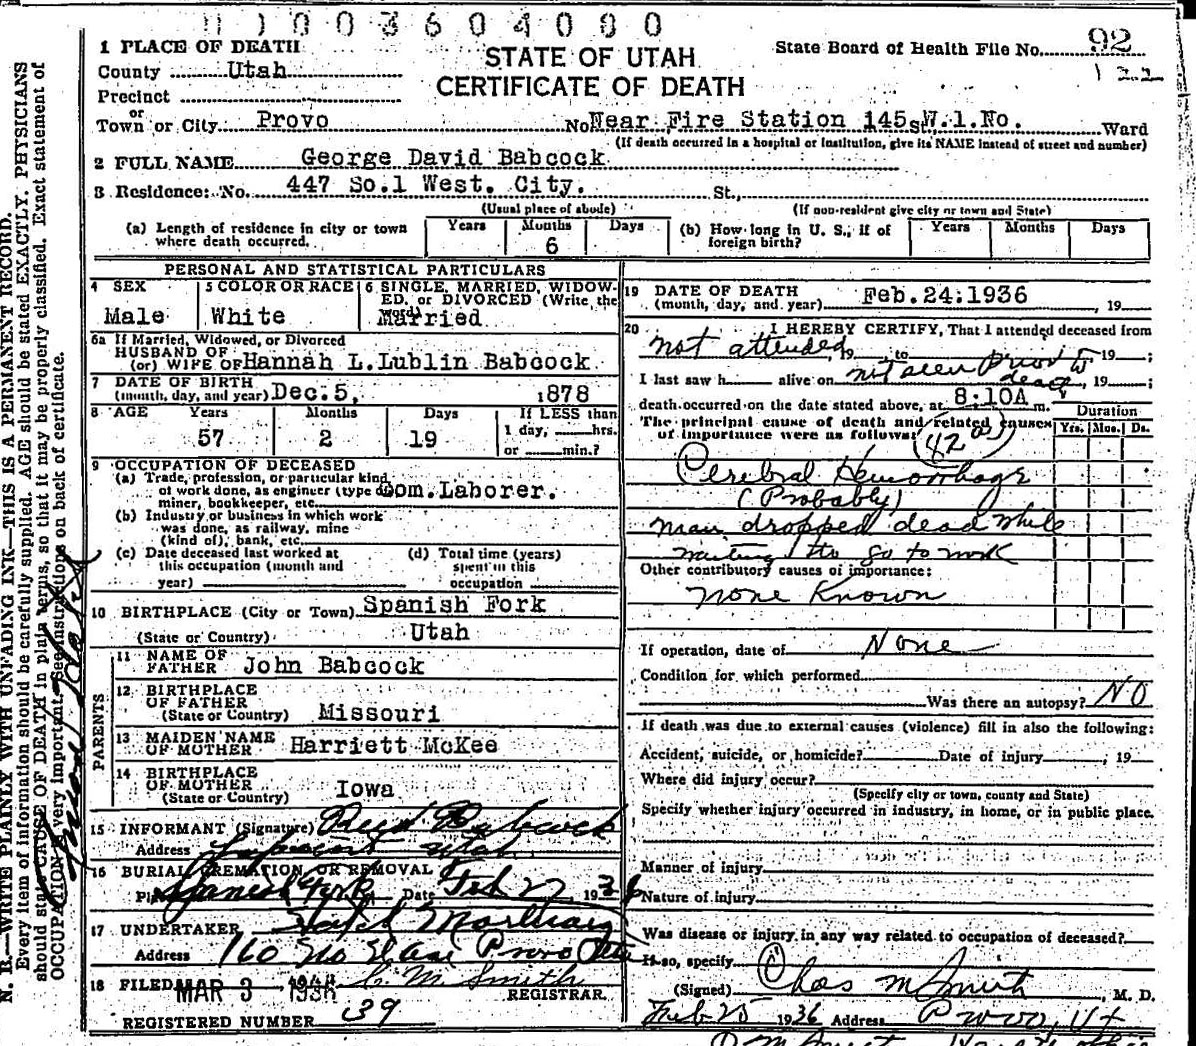 0 1 0 0 3 6 0 4 0 0 0
1 PLACE OF DEATH
County Utah
Precinct
or
Town or City Provo
STATE OF UTAH
CERTIFICATE OF DEATH
State Board of Health File No. 92
122
No Near Fire Station 145 St W.1.No. Ward
(If death occurred in a hospital or institution, give its NAME instead of street and number)
2 FULL NAME George David Babcock
3 Residence: No. 447 So.1 West. City. St.,
(Usual place of abode) (If non-resident give city or town and State)
(a) Length of residence in city or town where death occurred. Years Months 6 Days
(b) How long in U. S., if of foreign birth? Years Months Days
PERSONAL AND STATISTICAL PARTICULARS
4 SEX Male
5 COLOR OR RACE White
6 SINGLE, MARRIED, WIDOWED, or DIVORCED (Write the word) Married
6a If Married, Widowed, or Divorced
HUSBAND OF
(or) WIFE OF Hannah L.Lublin Babcock
7 DATE OF BIRTH
(month, day, and year) Dec.5, 1878
8 AGE Years Months Days If LESS than
57 2 19 1 day, hrs.
or min.?
9 OCCUPATION OF DECEASED
(a) Trade, profession, or particular kind
of work done, as engineer (type Com.Laborer.
miner, bookkeeper, etc.
(b) Industry or business in which work
was done, as railway, mine
(kind of), bank, etc.
(c) Date deceased last worked at
this occupation (month and
year)
(d) Total time (years)
spent in this
occupation
10 BIRTHPLACE (City or Town) Spanish Fork
(State or Country) Utah
PARENTS
11 NAME OF
FATHER John Babcock
12 BIRTHPLACE
OF FATHER
(State or Country) Missouri
13 MAIDEN NAME
OF MOTHER Harriett McKee
14 BIRTHPLACE
OF MOTHER
(State or Country) Iowa
15 INFORMANT (Signature) Reed Babcock
Address Utah
16 BURIAL, CREMATION, OR REMOVAL
Spanish Fork Date Feb 27, 1936
17 UNDERTAKER Mortuary
Address 160 Provo
18 FILED MAR 3 1936 C. M. Smith
REGISTRAR.
REGISTERED NUMBER 39
19 DATE OF DEATH
(month, day, and year) Feb.24:1936 , 19
20 I HEREBY CERTIFY, That I attended deceased from
not attended, 19 to 19 ;
I last saw h alive on not seen Prior to death, 19 ;
death occurred on the date stated above, at 8:10A m.
The principal cause of death and related causes
of importance were as follows: Duration
Yrs. Mos. Ds.
82 a
Cerebral Hemorrhage
(Probably)
man dropped dead while
waiting to go to work
Other contributory causes of importance:
none Known
If operation, date of None
Condition for which performed
Was there an autopsy? NO
If death was due to external causes (violence) fill in also the following:
Accident, suicide, or homicide? Date of injury , 19
Where did injury occur?
(Specify city or town, county and State)
Specify whether injury occurred in industry, in home, or in public place.
Manner of injury
Nature of injury
Was disease or injury in any way related to occupation of deceased?
If so, specify
(Signed) Chas M Smith , M. D.
Feb 25 1936 Address Provo, Ut
N. B.—WRITE PLAINLY WITH UNFADING INK—THIS IS A PERMANENT RECORD.
Every item of information should be carefully supplied. AGE should be stated EXACTLY. PHYSICIANS
should state CAUSE OF DEATH in plain terms, so that it may be properly classified. Exact statement of
OCCUPATION is very important. See instructions on back of certificate.